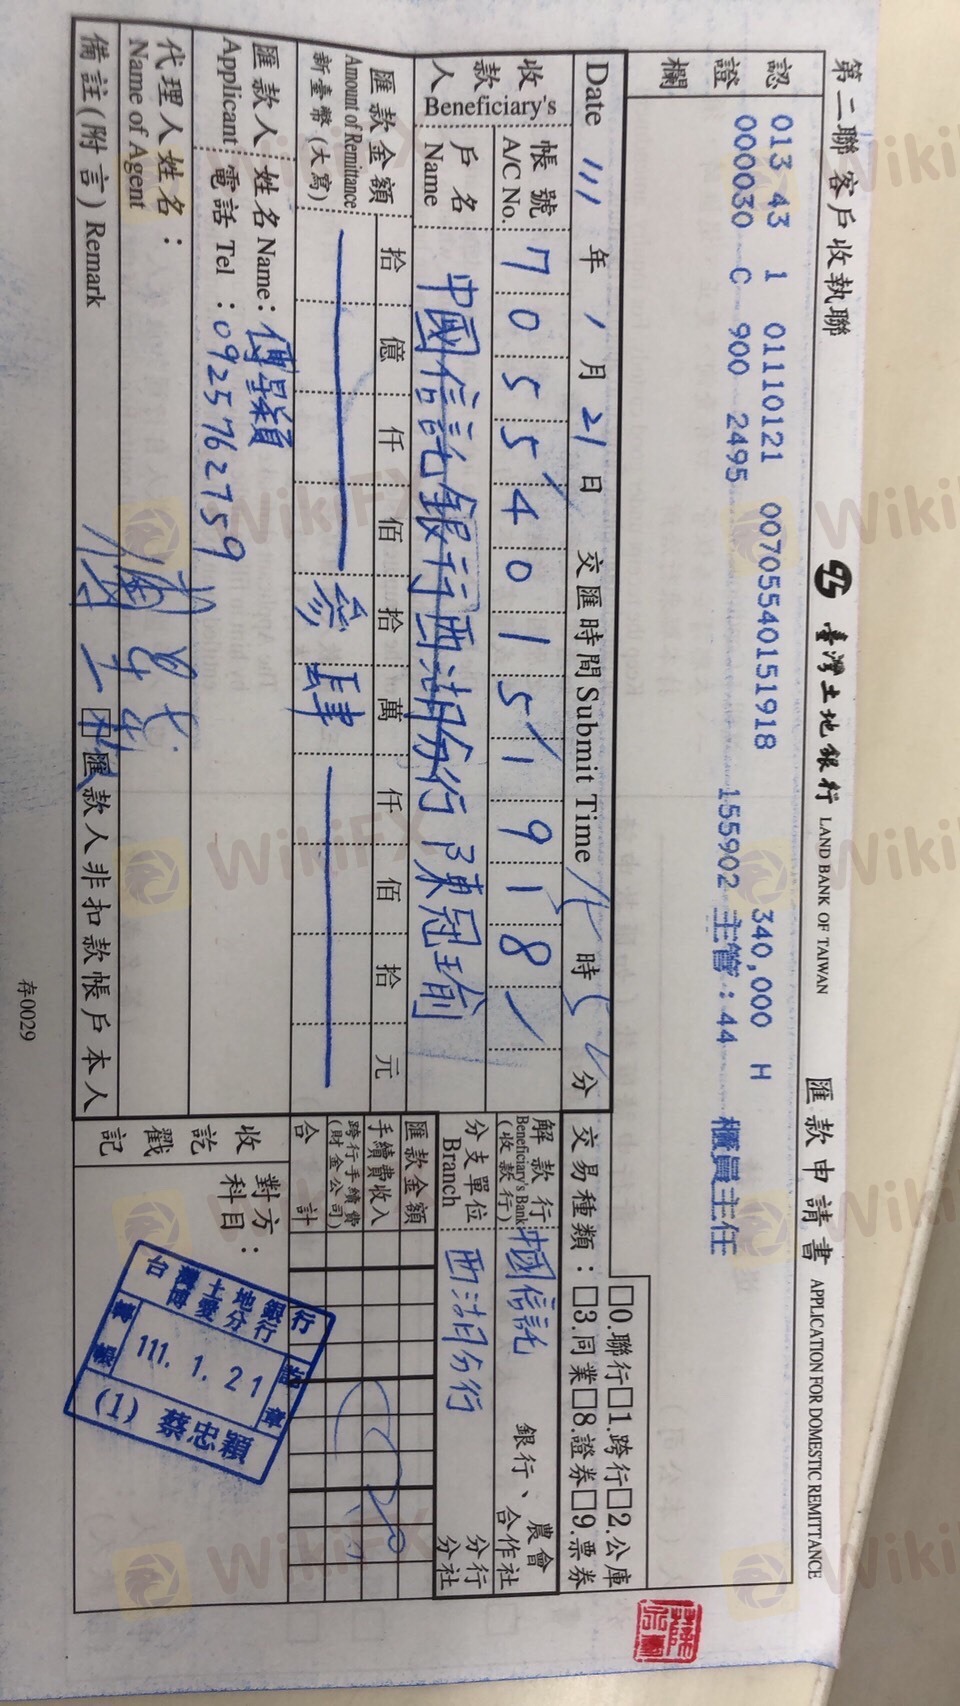 第二聯客戶收執聯
臺灣土地銀行 LAND BANK OF TAIWAN
匯款申請書 APPLICATION FOR DOMESTIC REMITTANCE
認證欄
013 43 1 01110121 0070554015191​8 340,000 H
000030 C 900 2495 155902 主管:44 櫃員主任
Date 111 年 1 月 21 日 交匯時間 Submit Time 時 分
交易種類: □0.聯行□1.跨行□2.公庫
□3.同業□8.證券□9.票券
收款人 Beneficiary's
帳號 A/C No. 70554015​1918
戶名 Name 中國信託銀行西湖分行 陳冠瑜
解款行 Beneficiary's Bank (收款行) 中國信託 銀行、農會 合作社
分支單位 Branch 西湖分行 分行 分社
匯款金額 Amount of Remittance 新臺幣(大寫)
拾 億 仟 佰 拾 萬 仟 佰 拾 元
參 肆
匯款金額
手續費收入
跨行手續費 (財金公司)
合計
匯款人 Applicant
姓名 Name: 傅星穎
電話 Tel : 0925762759
代理人姓名: Name of Agent
備註(附言) Remark
匯款人非扣款帳戶本人
收訖戳記
對方科目:
台灣土地銀行
博愛分行
轉帳 訖章
111. 1. 21
(1) 蔡忠穎
存0029
WikiFX